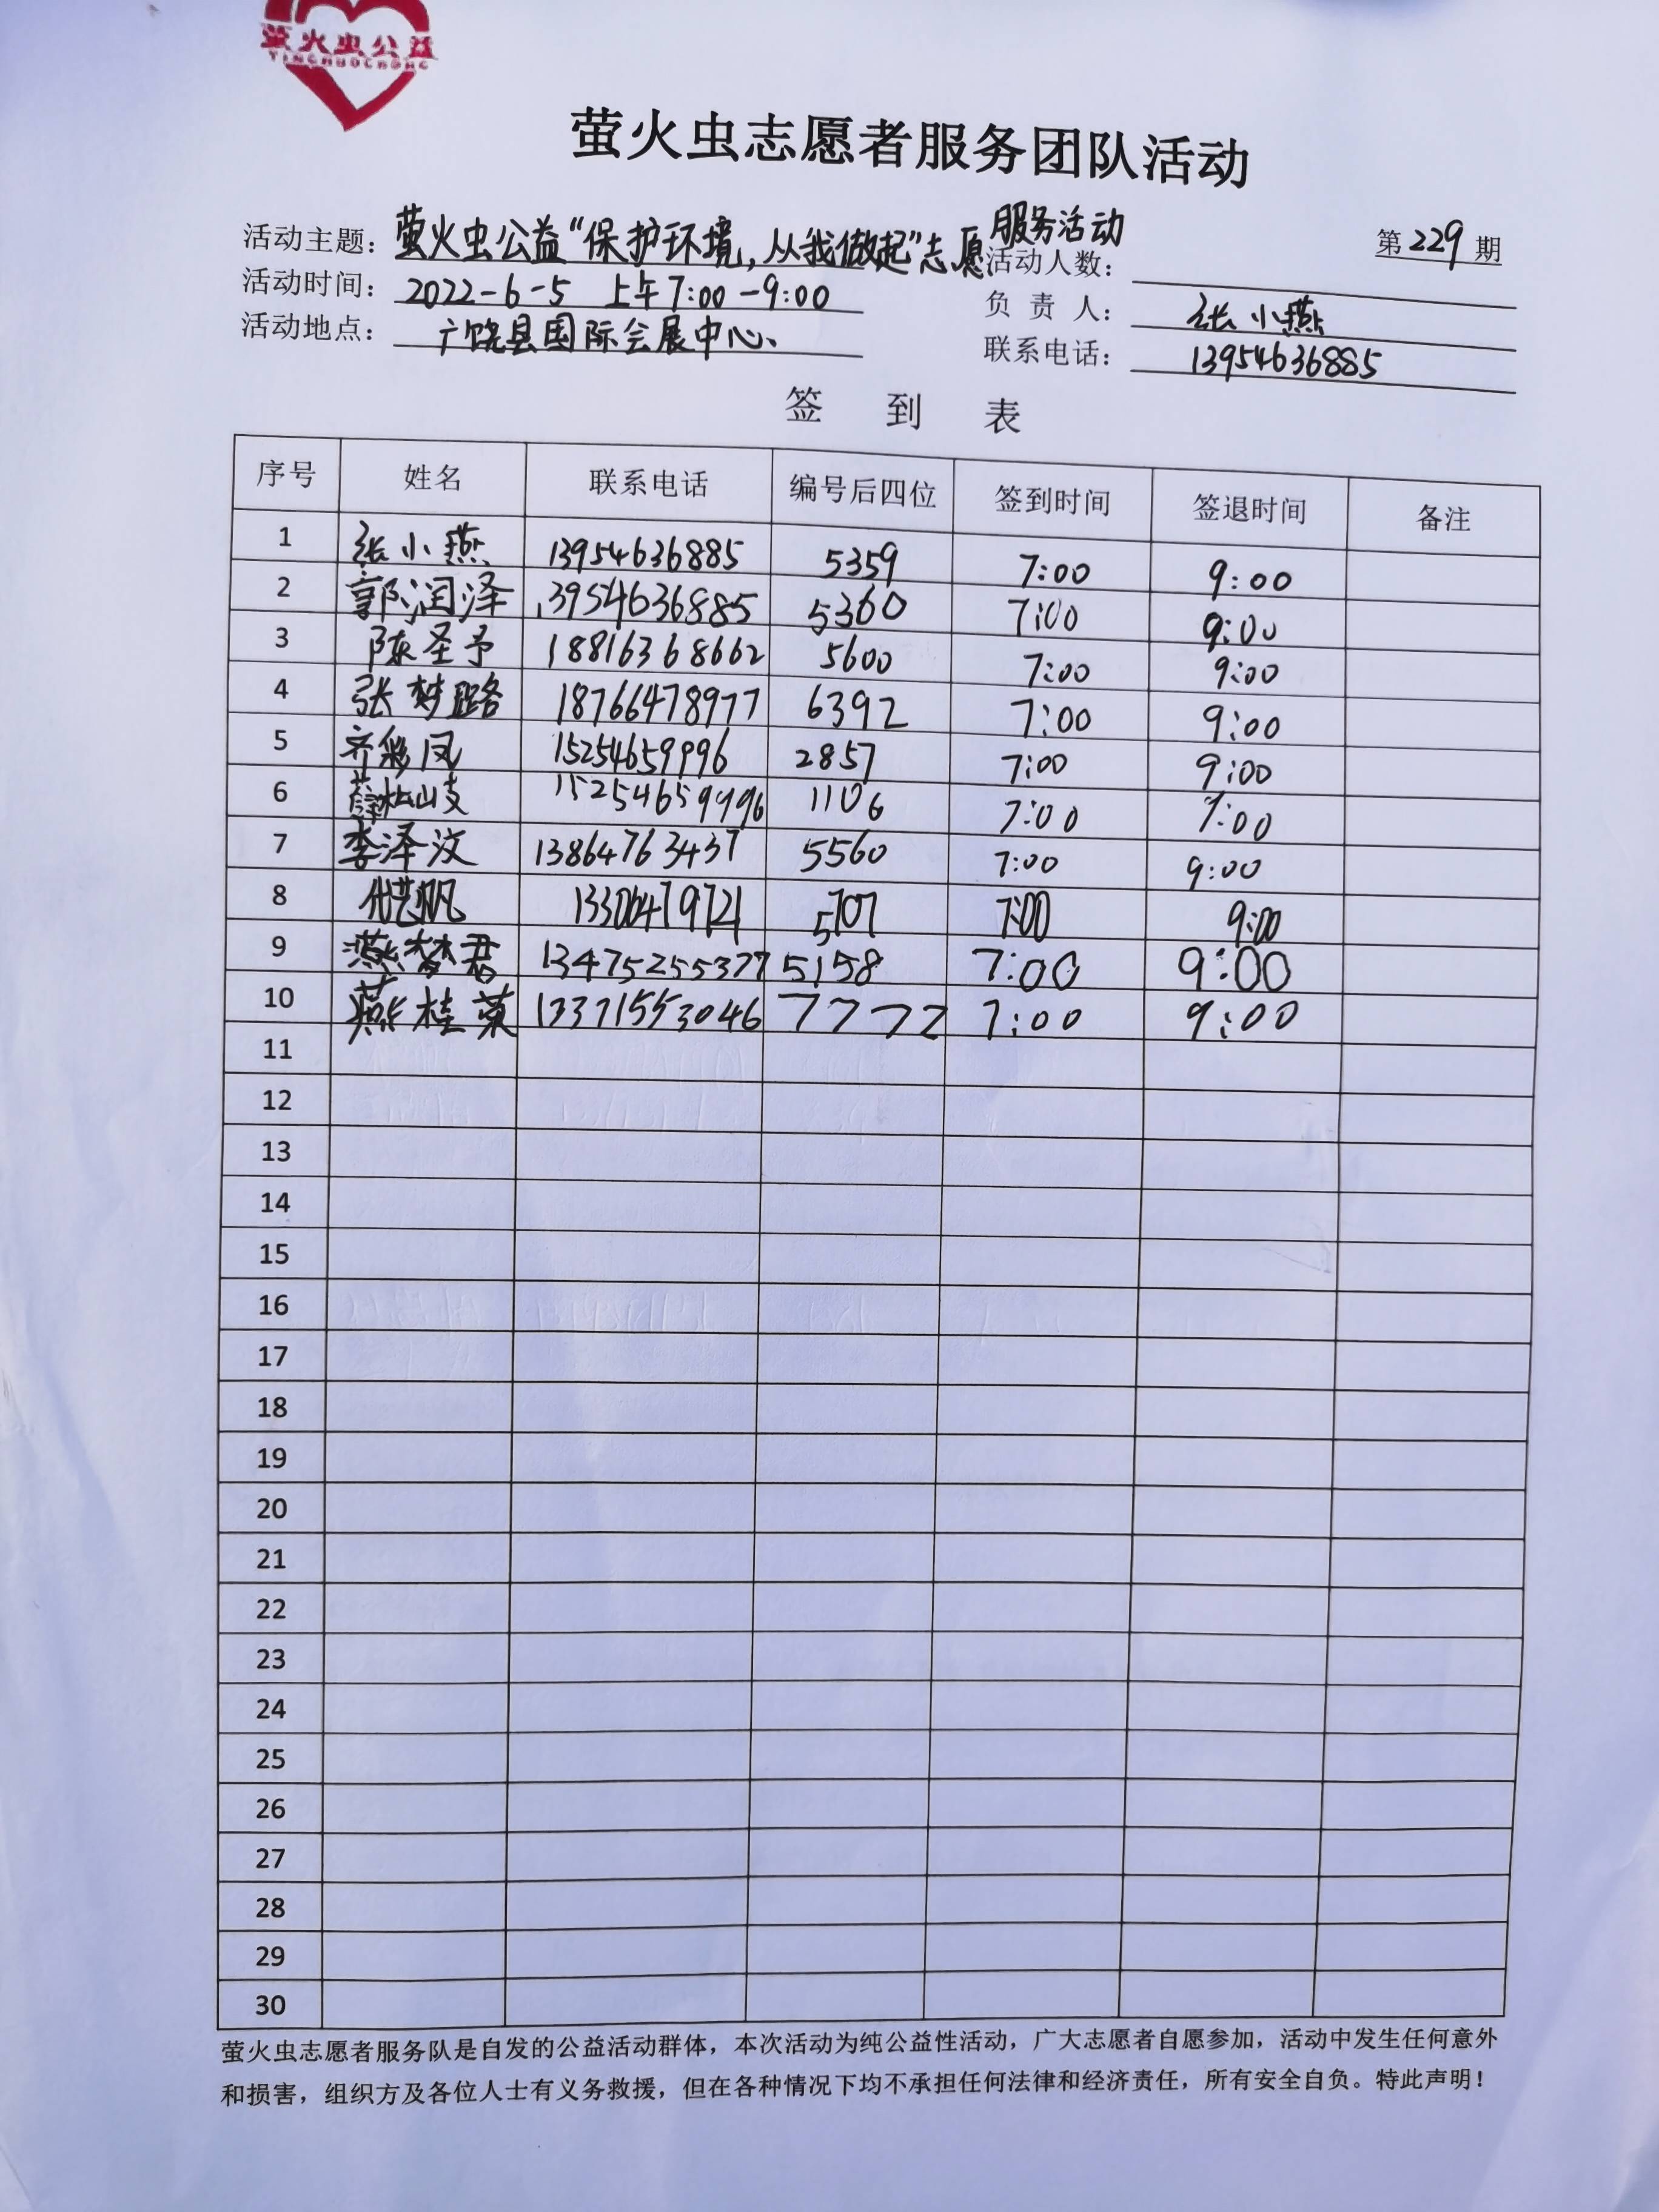 萤火虫公益
YINGHUOCHONG
萤火虫志愿者服务团队活动
第229期
活动主题：萤火虫公益“保护环境，从我做起”志愿服务活动
活动人数：
活动时间：2022-6-5 上午7:00-9:00
负 责 人：张小燕
活动地点：广饶县国际会展中心
联系电话：13954636885
签 到 表
序号 姓名 联系电话 编号后四位 签到时间 签退时间 备注
1 张小燕 13954636885 5359 7:00 9:00
2 郭润泽 13954636885 5360 7:00 9:00
3 陈圣予 18816368662 5600 7:00 9:00
4 张梦璐 18766478977 6392 7:00 9:00
5 齐彩凤 15254659996 2857 7:00 9:00
6 15254659996 1106 7:00 9:00
7 李泽汶 13864763437 5560 7:00 9:00
8 5707 7:00 9:00
9 燕梦君 13475255377 5158 7:00 9:00
10 燕桂荣 13371553046 7772 7:00 9:00
11
12
13
14
15
16
17
18
19
20
21
22
23
24
25
26
27
28
29
30
萤火虫志愿者服务队是自发的公益活动群体，本次活动为纯公益性活动，广大志愿者自愿参加，活动中发生任何意外
和损害，组织方及各位人士有义务救援，但在各种情况下均不承担任何法律和经济责任，所有安全自负。特此声明！